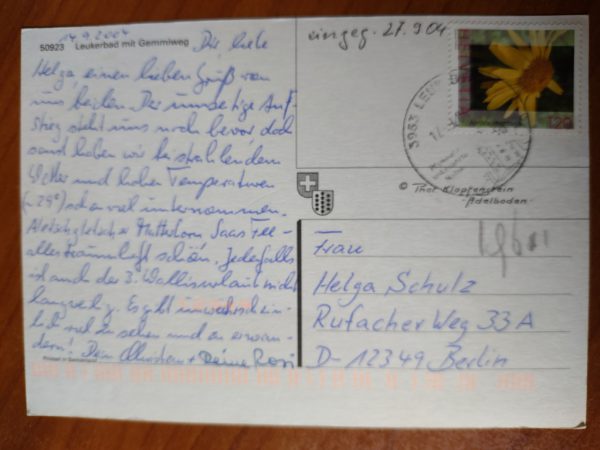 14.9.2004
50923 Leukerbad mit Gemmiweg
Dir, liebe
Helga, einen lieben Gruß von
uns beiden. Der umseitige Auf-
stieg steht uns noch bevor, doch
sonst haben wir bei strahlendem
Wetter und hohen Temperaturen
(~29°) schon viel unternommen.
Aletschgletscher Matterhorn Saas Fee -
alles traumhaft schön. Jedenfalls
ist auch der 3. Wallisurlaub nicht
langweilig. Es gibt unwahrschein-
lich viel zu sehen und zu erwan-
dern! Dein + Deine Rosi
Printed in Switzerland
eingeg. 27.9.04
120
3953
© Thor Klopfenstein
-Adelboden-
Frau
Helga Schulz
Rufacher Weg 33 A
D- 12349 Berlin